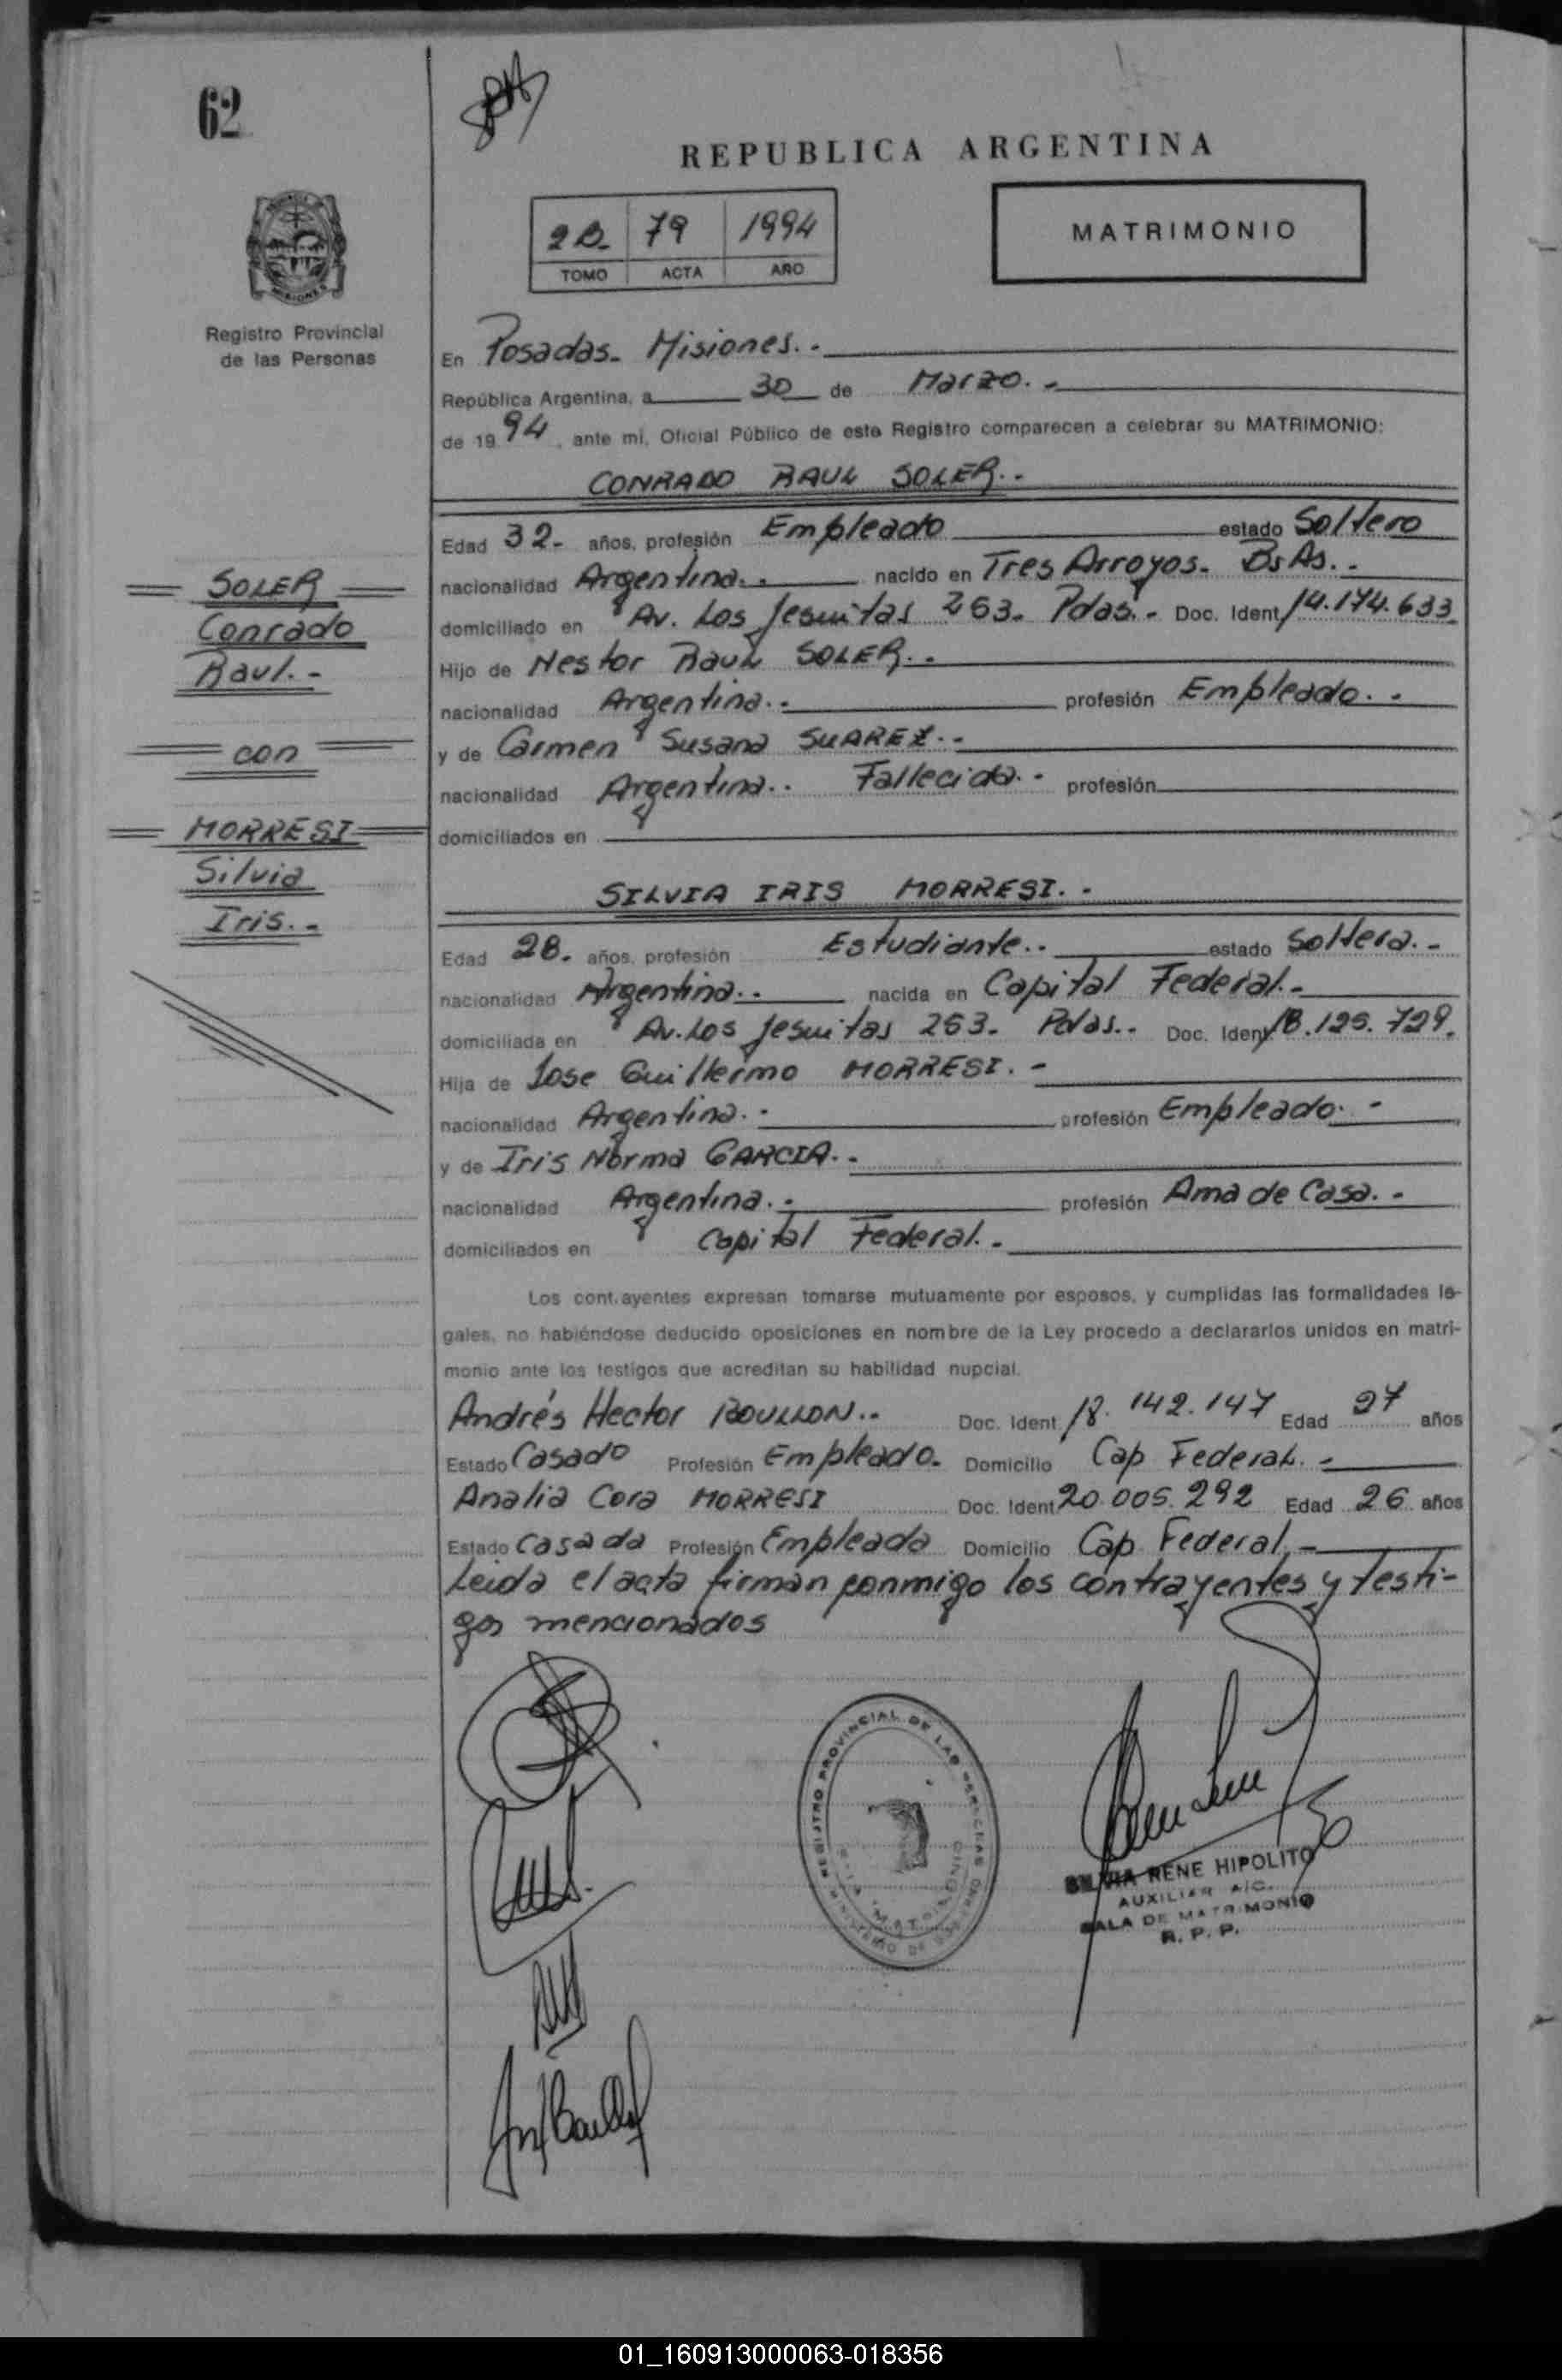 62
REPUBLICA ARGENTINA
2B. 79 1994
TOMO ACTA AÑO
MATRIMONIO
MISIONES
Registro Provincial
de las Personas
En Posadas. Misiones..
República Argentina, a 30 de Marzo..
de 1994, ante mí, Oficial Público de este Registro comparecen a celebrar su MATRIMONIO:
CONRADO RAUL SOLER..
Edad 32. años, profesión Empleado estado Soltero
nacionalidad Argentina.. nacido en Tres Arroyos. Bs As..
domiciliado en Av. Los Jesuitas 263. Pdas.. Doc. Ident. 14.174.633.
Hijo de Nestor Raul SOLER..
nacionalidad Argentina.. profesión Empleado..
y de Carmen Susana SUAREZ..
nacionalidad Argentina.. Fallecida.. profesión
domiciliados en
SOLER
Conrado
Raul.-
con
MORRESI
Silvia
Iris..
SILVIA IRIS MORRESI..
Edad 28. años, profesión Estudiante.. estado Soltera..
nacionalidad Argentina.. nacida en Capital Federal..
domiciliada en Av. Los Jesuitas 263. Pdas.. Doc. Ident. 18.125.729.
Hija de Jose Guillermo MORRESI.-
nacionalidad Argentina.. profesión Empleado.-
y de Iris Norma GARCIA..
nacionalidad Argentina.. profesión Ama de Casa..
domiciliados en Capital Federal..
Los contrayentes expresan tomarse mutuamente por esposos, y cumplidas las formalidades le-
gales, no habiéndose deducido oposiciones en nombre de la Ley procedo a declararlos unidos en matri-
monio ante los testigos que acreditan su habilidad nupcial.
Andrés Hector BOULLON.. Doc. Ident. 18.142.147 Edad 27 años
Estado Casado Profesión Empleado. Domicilio Cap Federal.-
Analia Cora MORRESI Doc. Ident. 20.005.292 Edad 26 años
Estado Casada Profesión Empleada Domicilio Cap Federal.-
Leida el acta firman conmigo los contrayentes y testi-
gos mencionados
REGISTRO PROVINCIAL DE LAS PERSONAS
MINISTERIO DE GOBIERNO
MATRIMONIO
SILVIA RENE HIPOLITO
AUXILIAR A/C.
SALA DE MATRIMONIO
R. P. P.
01_160913000063-018356